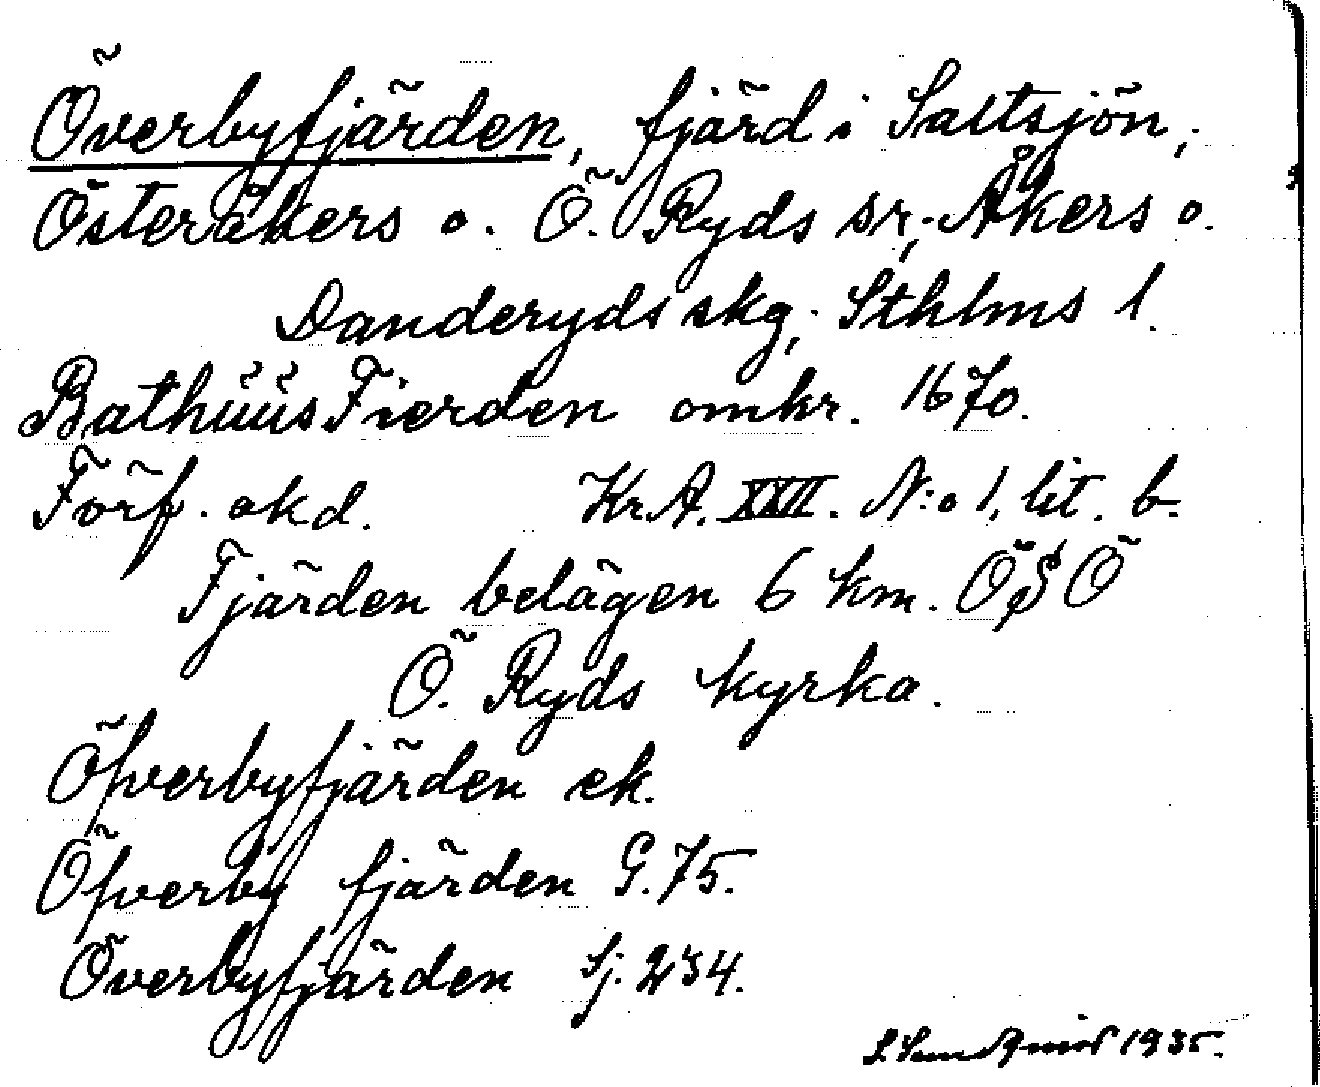 Överbyfjärden, fjärd i Saltsjön,
Österåkers o. Ö. Ryds sr, Åkers o.
Danderyds skg, Sthlms l.
Bathüüs Fierden omkr. 1670.
Förf. okd. KrA. XXII. N:o 1, lit. b.
Fjärden belägen 6 km. ÖSÖ
Ö. Ryds kyrka.
Öfverbyfjärden ek.
Öfverby fjärden G. 75.
Överbyfjärden Sj. 234.
1935.